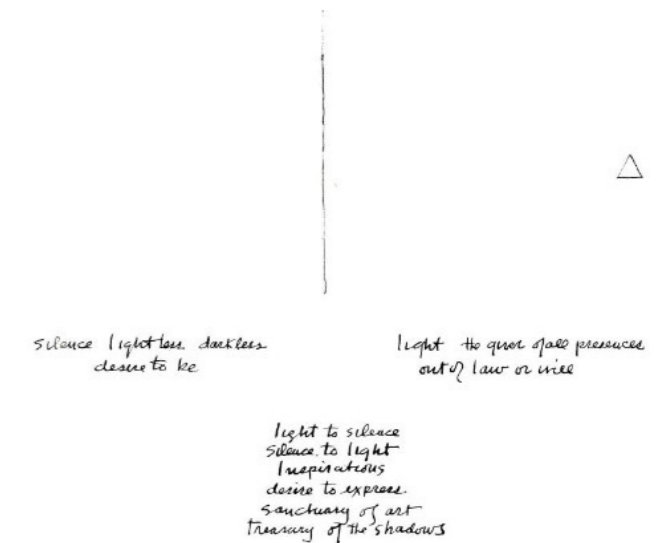 silence lightless darkless
desire to be
light the giver of all presences
out of law or will
light to silence
silence to light
Inspirations
desire to express
sanctuary of art
treasury of the shadows